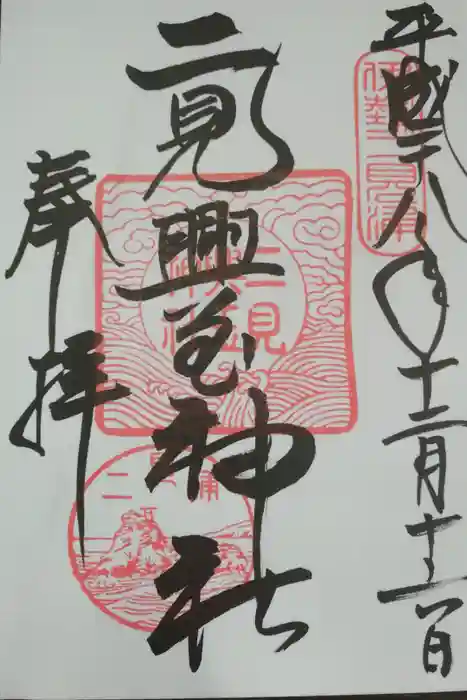 平成二十八年十二月十二日
伊勢二見浦
二見興玉神社
二見興玉神社
二見浦
奉拝